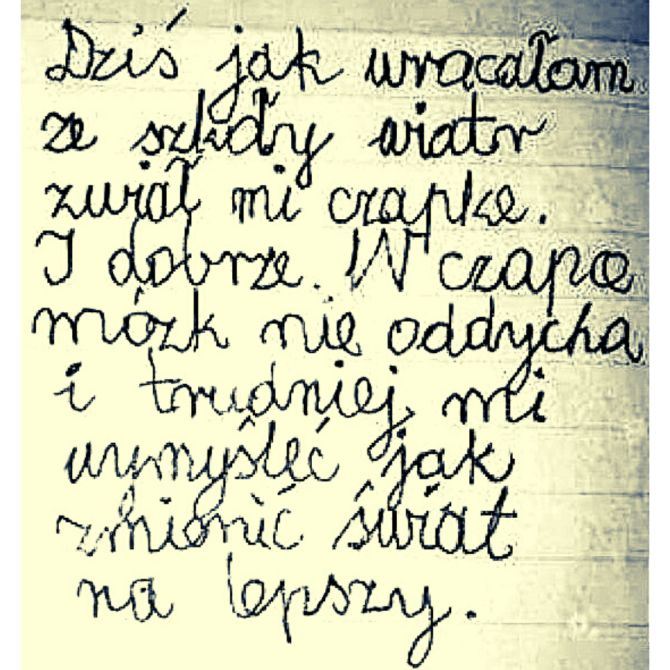 Dziś jak wracałam
ze szkoły wiatr
zwiał mi czapke.
I dobrze. W czapce
mózk nie oddycha
i trudniej mi
wymyśleć jak
zmienić świat
na lepszy.